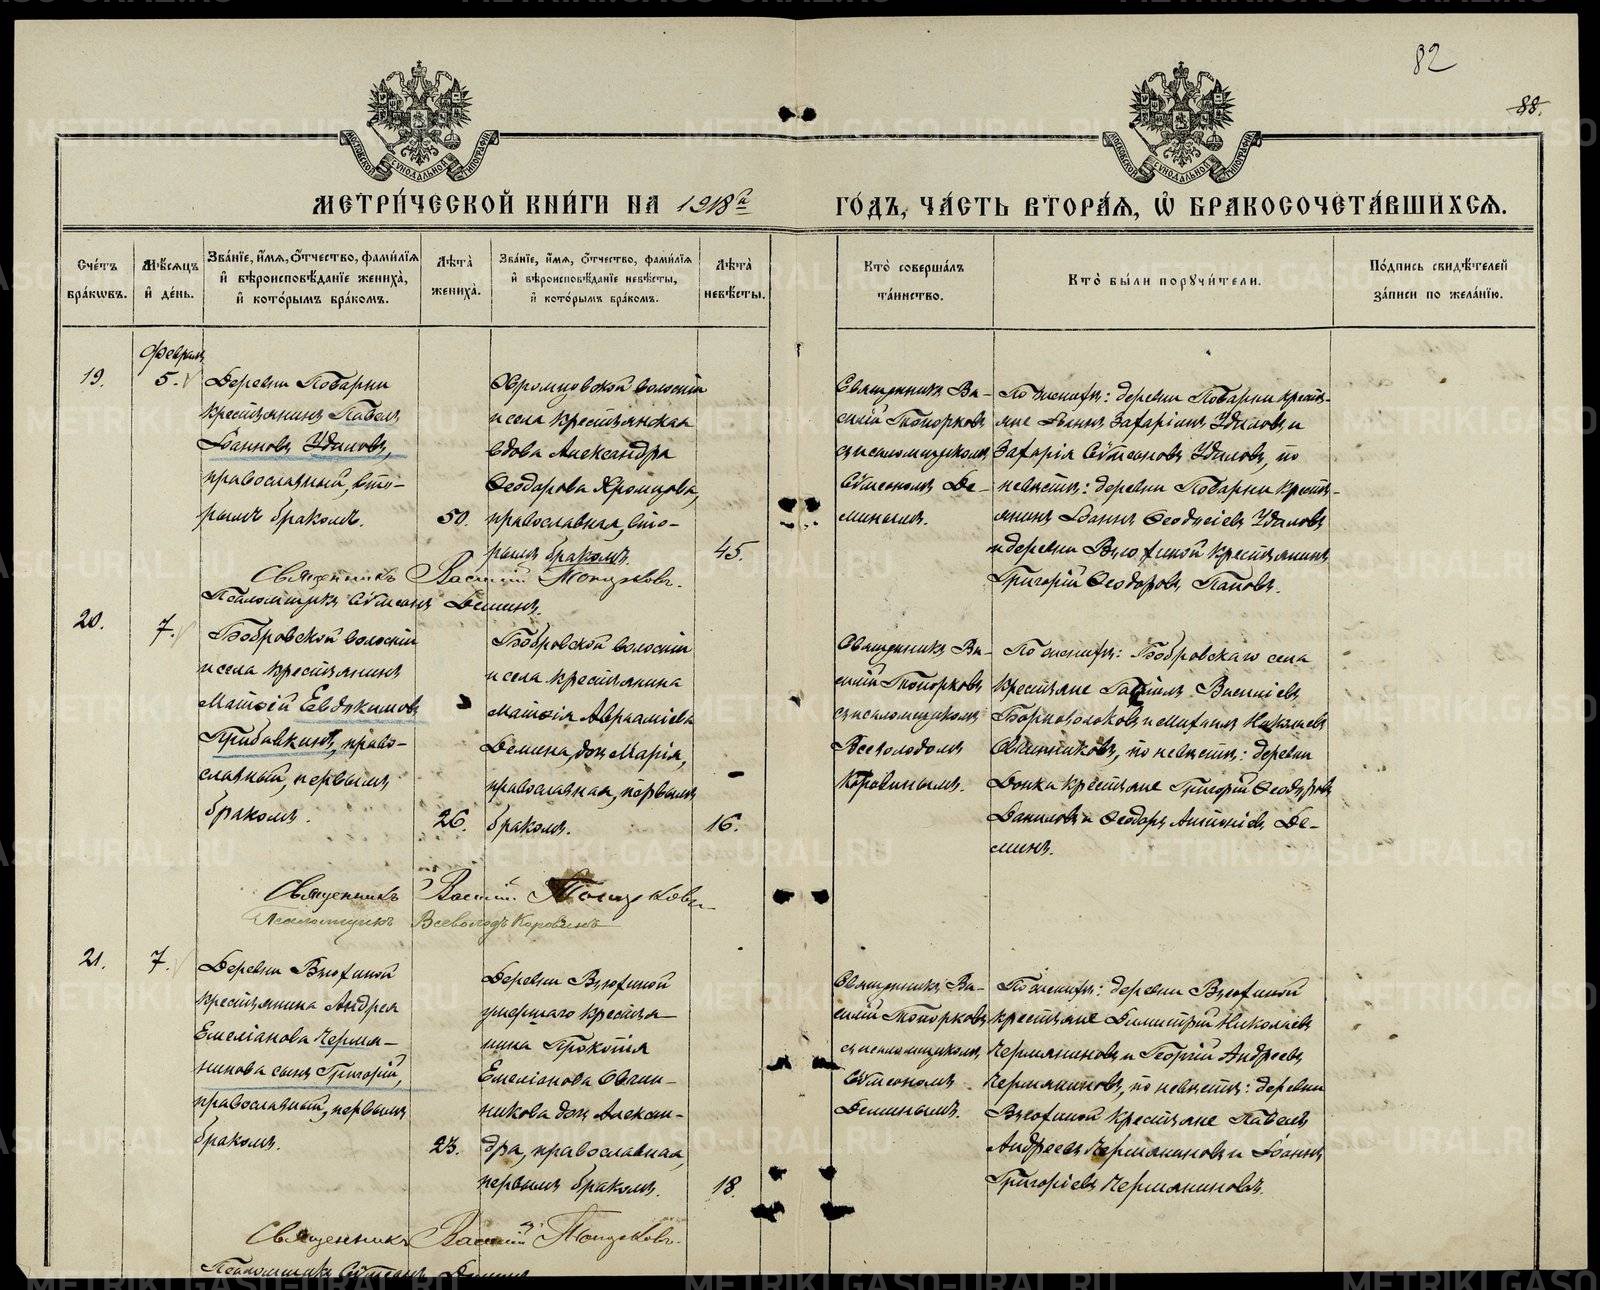 82
88.
МЕТРИ́ЧЕСКОЙ КНИ́ГИ НА 1918й ГО́ДЪ, ЧА́СТЬ ВТОРА́Я, Ѽ БРАКОСОЧЕТА́ВШИХСЯ.
Сче́тъ бра́кѡвъ.
Мѣ́сяцъ и҆ де́нь.
Зва́нїе, и҆́мя, ѻ҆́тчество, фами́лїя
и҆ вѣроисповѣ́данїе жениха̀,
и҆ кото́рымъ бра́комъ.
Лѣ́та жениха̀.
Зва́нїе, и҆́мя, ѻ҆́тчество, фами́лїя
и҆ вѣроисповѣ́данїе невѣ́сты,
и҆ кото́рымъ бра́комъ.
Лѣ́та невѣ́сты.
Кто̀ соверша́лъ
та́инство.
Кто̀ бы́ли порꙋчи́тели.
По́дпись свидѣ́телей
за́писи по жела́нїю.
19.
Февраль
5.
Деревни Поварни
крестьянинъ Павелъ
Іоанновъ Удаловъ,
православный, вто-
рымъ бракомъ.
50.
волости
и села крестьянская
вдова Александра
Ѳеодорова Хромцова,
православная, вто-
рымъ бракомъ.
45.
Священникъ Ва-
силій Топорковъ
съ псаломщикомъ
Сѵмеономъ Де-
минымъ.
По женихѣ: деревни Поварни кресть-
яне Іоаннъ Захаріинъ Удаловъ и
Захарія Сѵмеоновъ Удаловъ, по
невѣстѣ: деревни Поварни кресть-
янинъ Іоаннъ Удаловъ
и деревни крестьянинъ
Григорій Ѳеодоровъ Паповъ.
Священникъ Василій Топорковъ.
Псаломщикъ Сѵмеонъ Деминъ.
20.
7.
Бобровской волости
и села крестьянинъ
Матѳій Евдокимовъ
Прибавкинъ, право-
славный, первымъ
бракомъ.
26.
Бобровской волости
и села крестьянина
Матѳія Аврааміева
Демина, дочь Марія,
православная, первымъ
бракомъ.
16.
Священникъ Ва-
силій Топорковъ
съ псаломщикомъ
Всеволодомъ
Коровинымъ.
По женихѣ: Бобровскаго села
крестьяне Гавріилъ Василіевъ
Борноволоковъ и Михаилъ
Овчинниковъ, по невѣстѣ: деревни
крестьяне Григорій Ѳеодоровъ
Даниловъ и Ѳеодоръ Антоніевъ Де-
минъ.
Священникъ Василій Топорковъ
Псаломщикъ Всеволодъ Коровинъ
21.
7.
Деревни
крестьянина Андрея
Емеліанова Чермя-
нинова сынъ Григорій,
православный, первымъ
бракомъ.
23.
Деревни
умершаго крестья-
нина Прокопія
Емеліанова Овчин-
никова дочь Алексан-
дра, православная,
первымъ бракомъ.
18.
Священникъ Ва-
силій Топорковъ
съ псаломщикомъ
Сѵмеономъ
Деминымъ.
По женихѣ: деревни
крестьяне Димитрій Николаевъ
Чермяниновъ и Георгій Андреевъ
Чермяниновъ, по невѣстѣ: деревни
крестьяне Павелъ
Андреевъ Чермяниновъ и Іоаннъ
Григоріевъ Чермяниновъ.
Священникъ Василій Топорковъ.
Псаломщикъ Сѵмеонъ Деминъ
METRIKI.GASO-URAL.RU